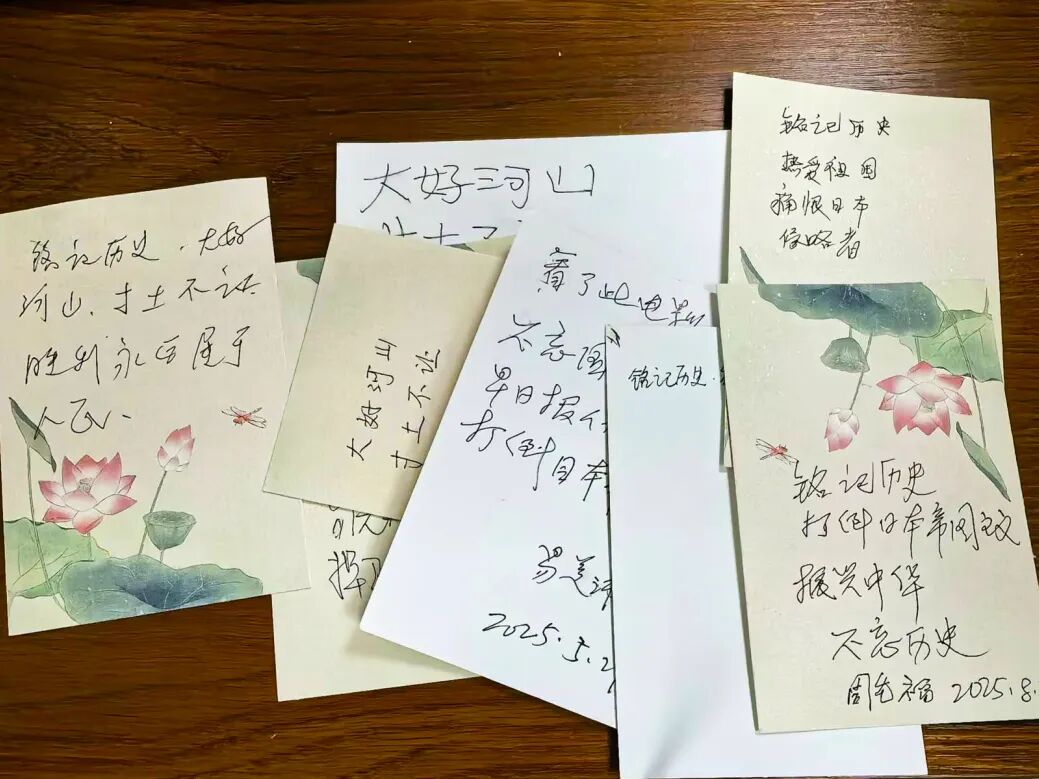 铭记历史，大好
河山，寸土不让
胜利永远属于
人民、
大好河山
大好河山
寸土不让
看了此电影
不忘国
早日报仇
打倒日本
2025.
铭记历史
铭记历史
热爱祖国
痛恨日本
侵略者
铭记历史
打倒日本帝国主义
振兴中华
不忘历史
2025.8.